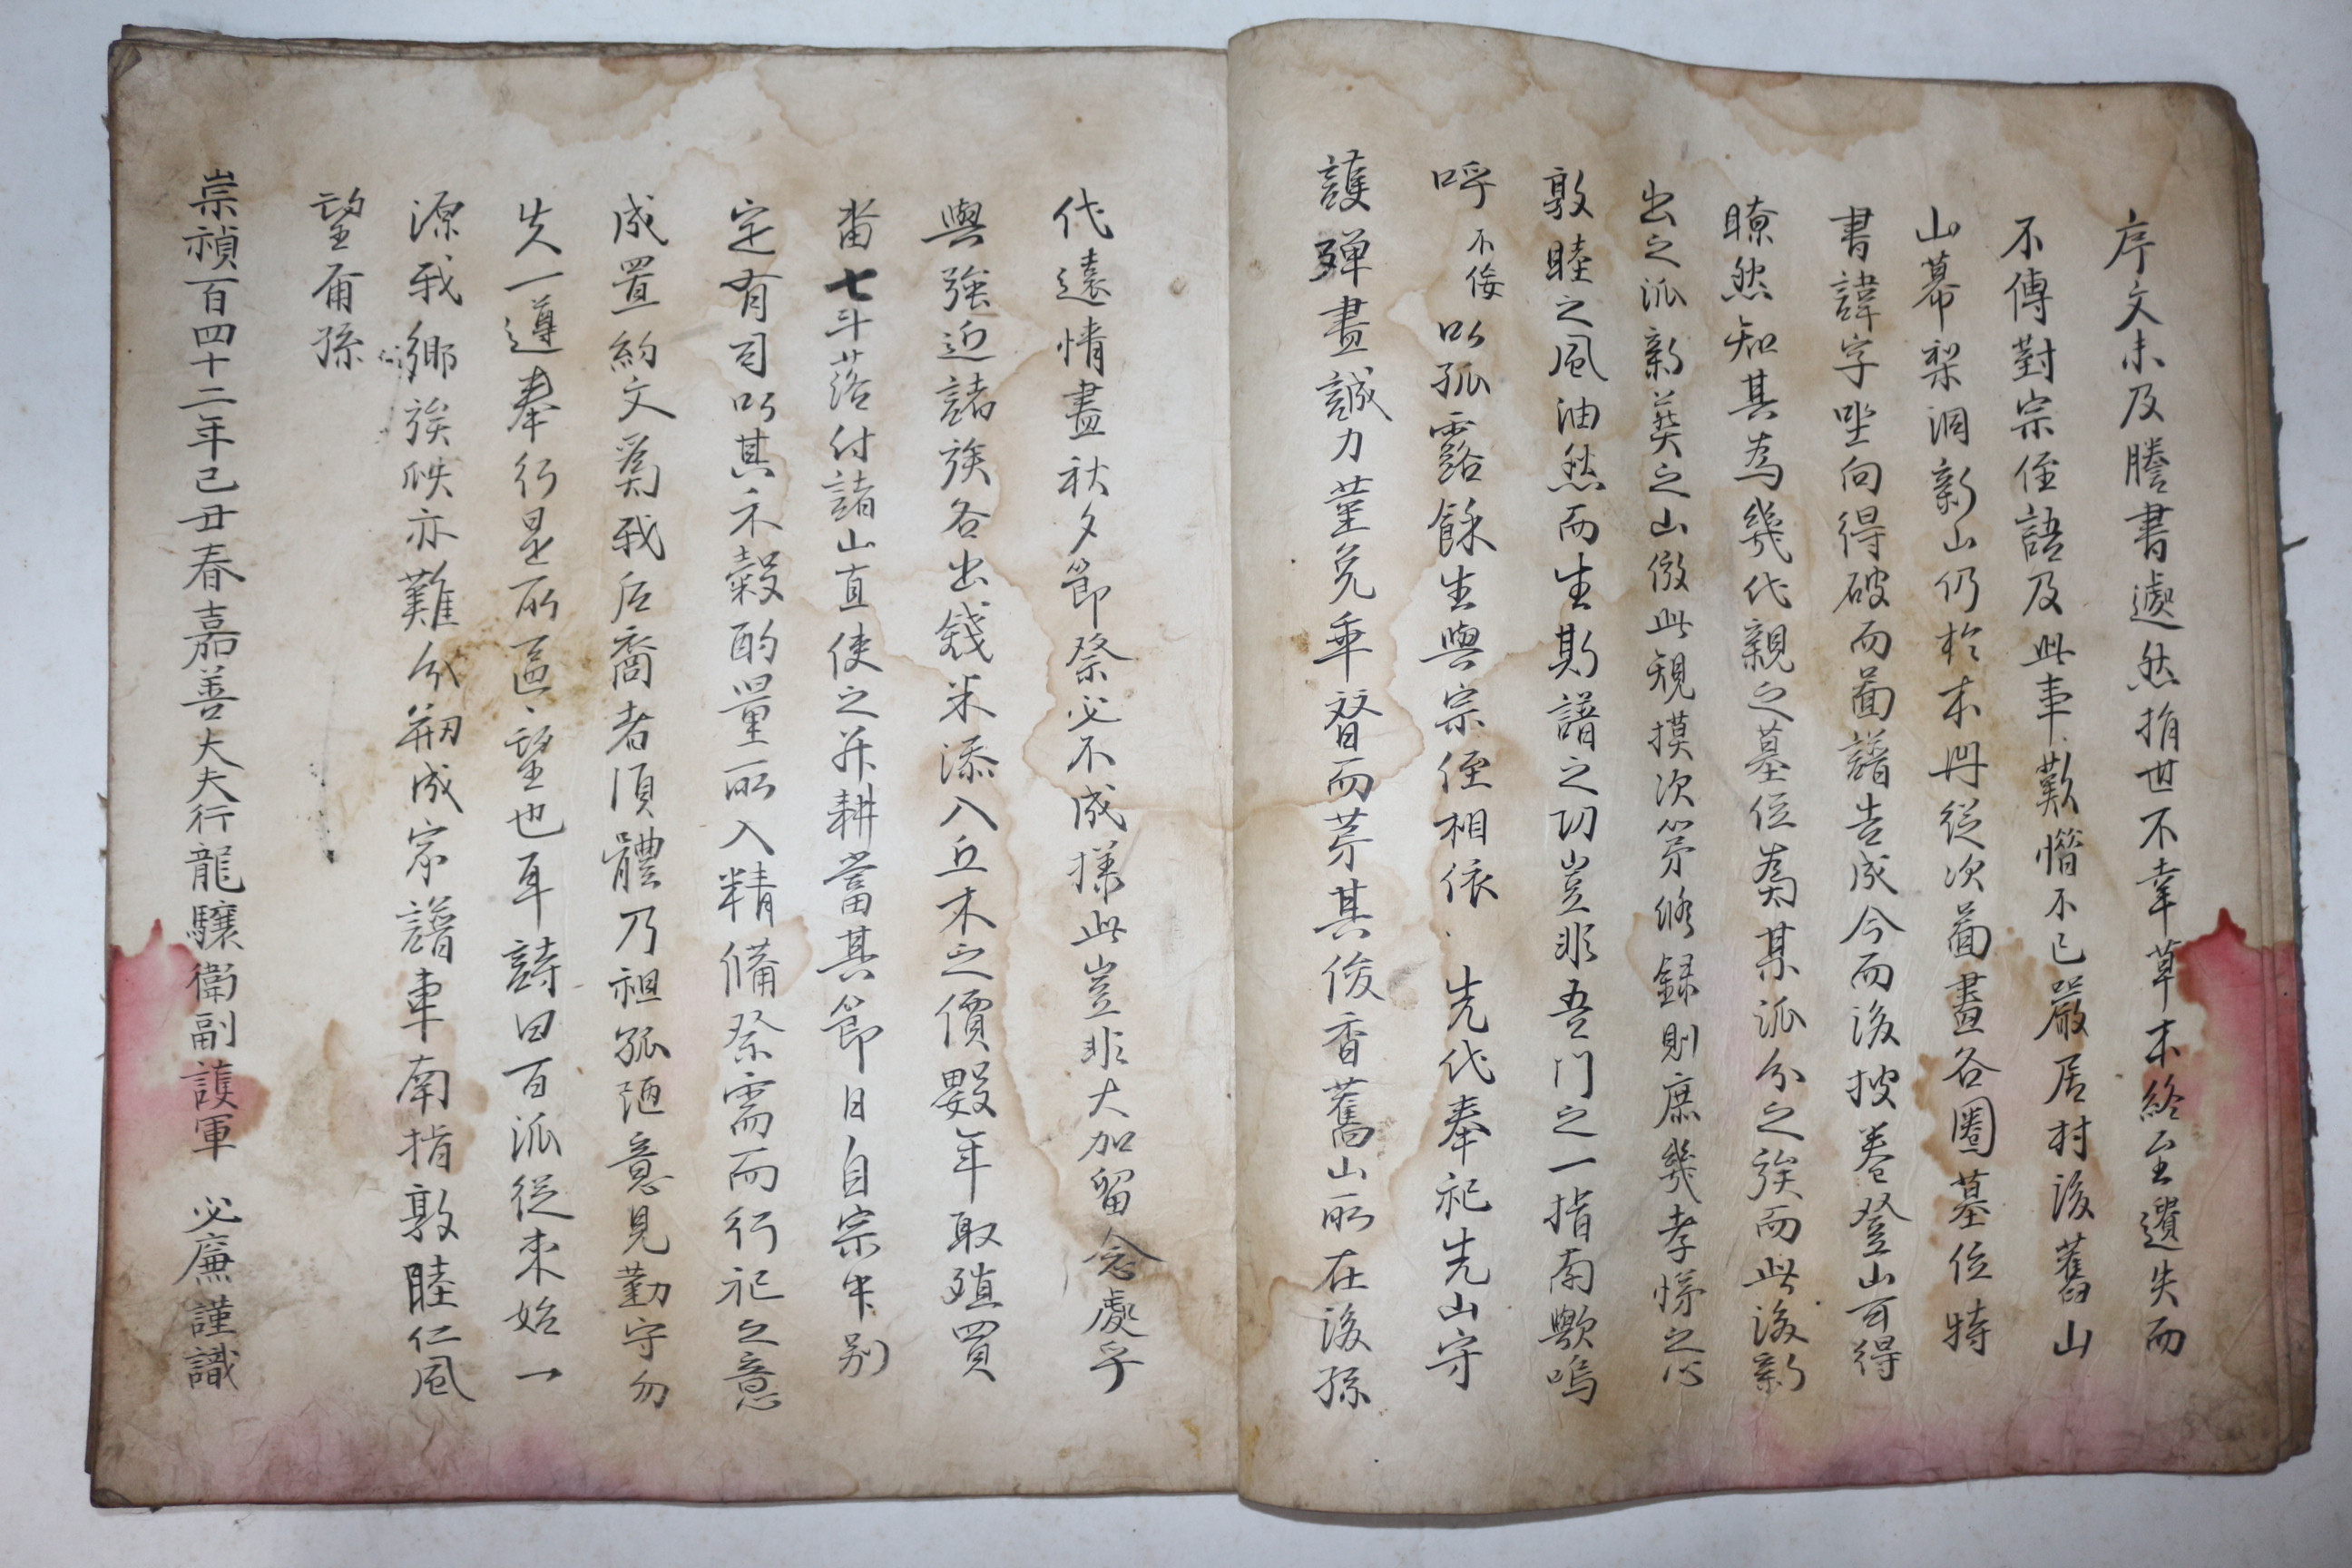 序文未及謄書遽然捐世不幸草本終至遺失而
不傳對宗侄語及此事歎惜不已嚴居村後舊山
山幕梨洞新山仍於本冊從次啚畫各圈墓位特
書諱字坐向得破而啚譜告成今而後披卷登山可得
瞭然知其為幾代親之墓位為某派分之族而此後新
出之派新葬之山倣此規摸次第修錄則庶幾孝悌之心
敦睦之風油然而生斯譜之功豈非吾門之一指南歟嗚
呼不佞以孤露餘生與宗侄相依先代奉祀先山守
護殫盡誠力菫免乖眘而芽其俊香舊山所在後孫
代遠情盡秋夕節祭必不成樣此豈非大加留念處乎
與強近諸族各出錢米添入丘木之價數年取殖買
畓七斗落付諸山直使之幷耕當其節日自宗中別
定有司以其禾穀酌量所入精備祭需而行祀之意
成置約文爲我后裔者湏體乃祖孤陋意見勤守勿
失一遵奉行是所區〻望也耳詩曰百派從来始一
源我鄉族映亦難分刱成家譜車南指敦睦仁風
望甭孫
崇禎百四十二年己丑春嘉善大夫行龍驤衛副護軍 必廉謹識